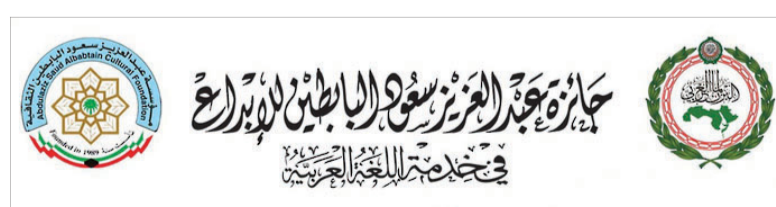 جائزة عبد العزيز سعود البابطين للإبداع
في خدمة اللغة العربية
مؤسسة عبدالعزيز سعود البابطين الثقافية
Abdulaziz Saud Albabtain Cultural Foundation
Founded in 1989